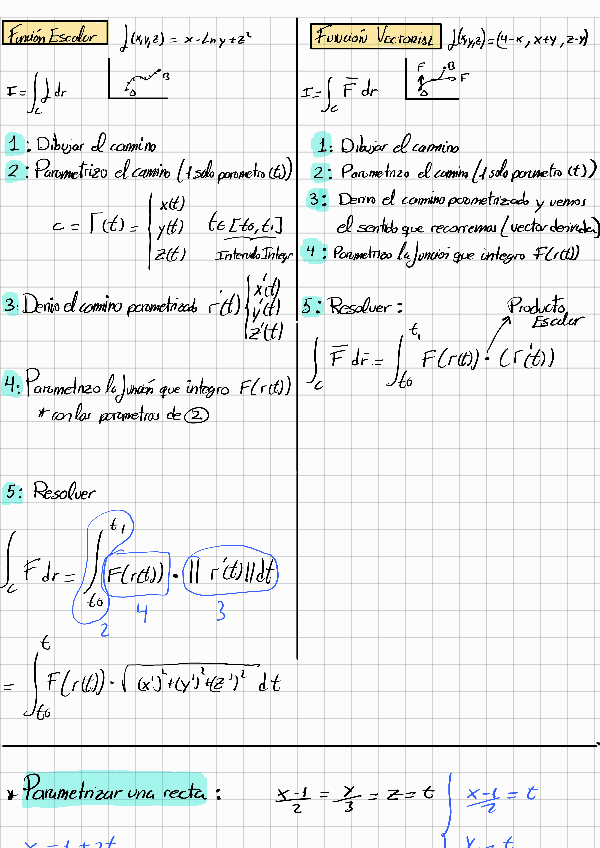 Función Escalar f(x,y,z) = x - Ln y + z²
I = ∫c f dr
A B
1: Dibujar el camino
2: Parametrizo el camino (1 solo parametro (t))
c = r(t) = { x(t) y(t) z(t) t ∈ [t0, t1]
Intervalo Integr
3: Derivo el camino parametrizado r'(t) { x'(t) y'(t) z'(t)
4: Parametrizo la función que integro F(r(t))
* con los parametros de ②
5: Resolver
∫c F dr = ∫t0 t1 F(r(t)) · || r'(t) || dt
2 4 3
= ∫t0 t F(r(t)) · √(x')² + (y')² + (z')² dt
Función Vectorial f(x,y,z) = (4-x, x+y, z-y)
I = ∫c F̅ dr
F B A F
1: Dibujar el camino
2: Parametrizo el camino (1 solo parametro (t))
3: Derivo el camino parametrizado y vemos
el sentido que recorremos (vector derivada)
4: Parametrizo la función que integro F(r(t))
5: Resolver:
Producto
Escalar
∫c F̅ dr̅ = ∫t0 t1 F(r(t)) · (r'(t))
* Parametrizar una recta: x-1/2 = y/3 = z = t { x-1/2 = t
x = 1 + 2t